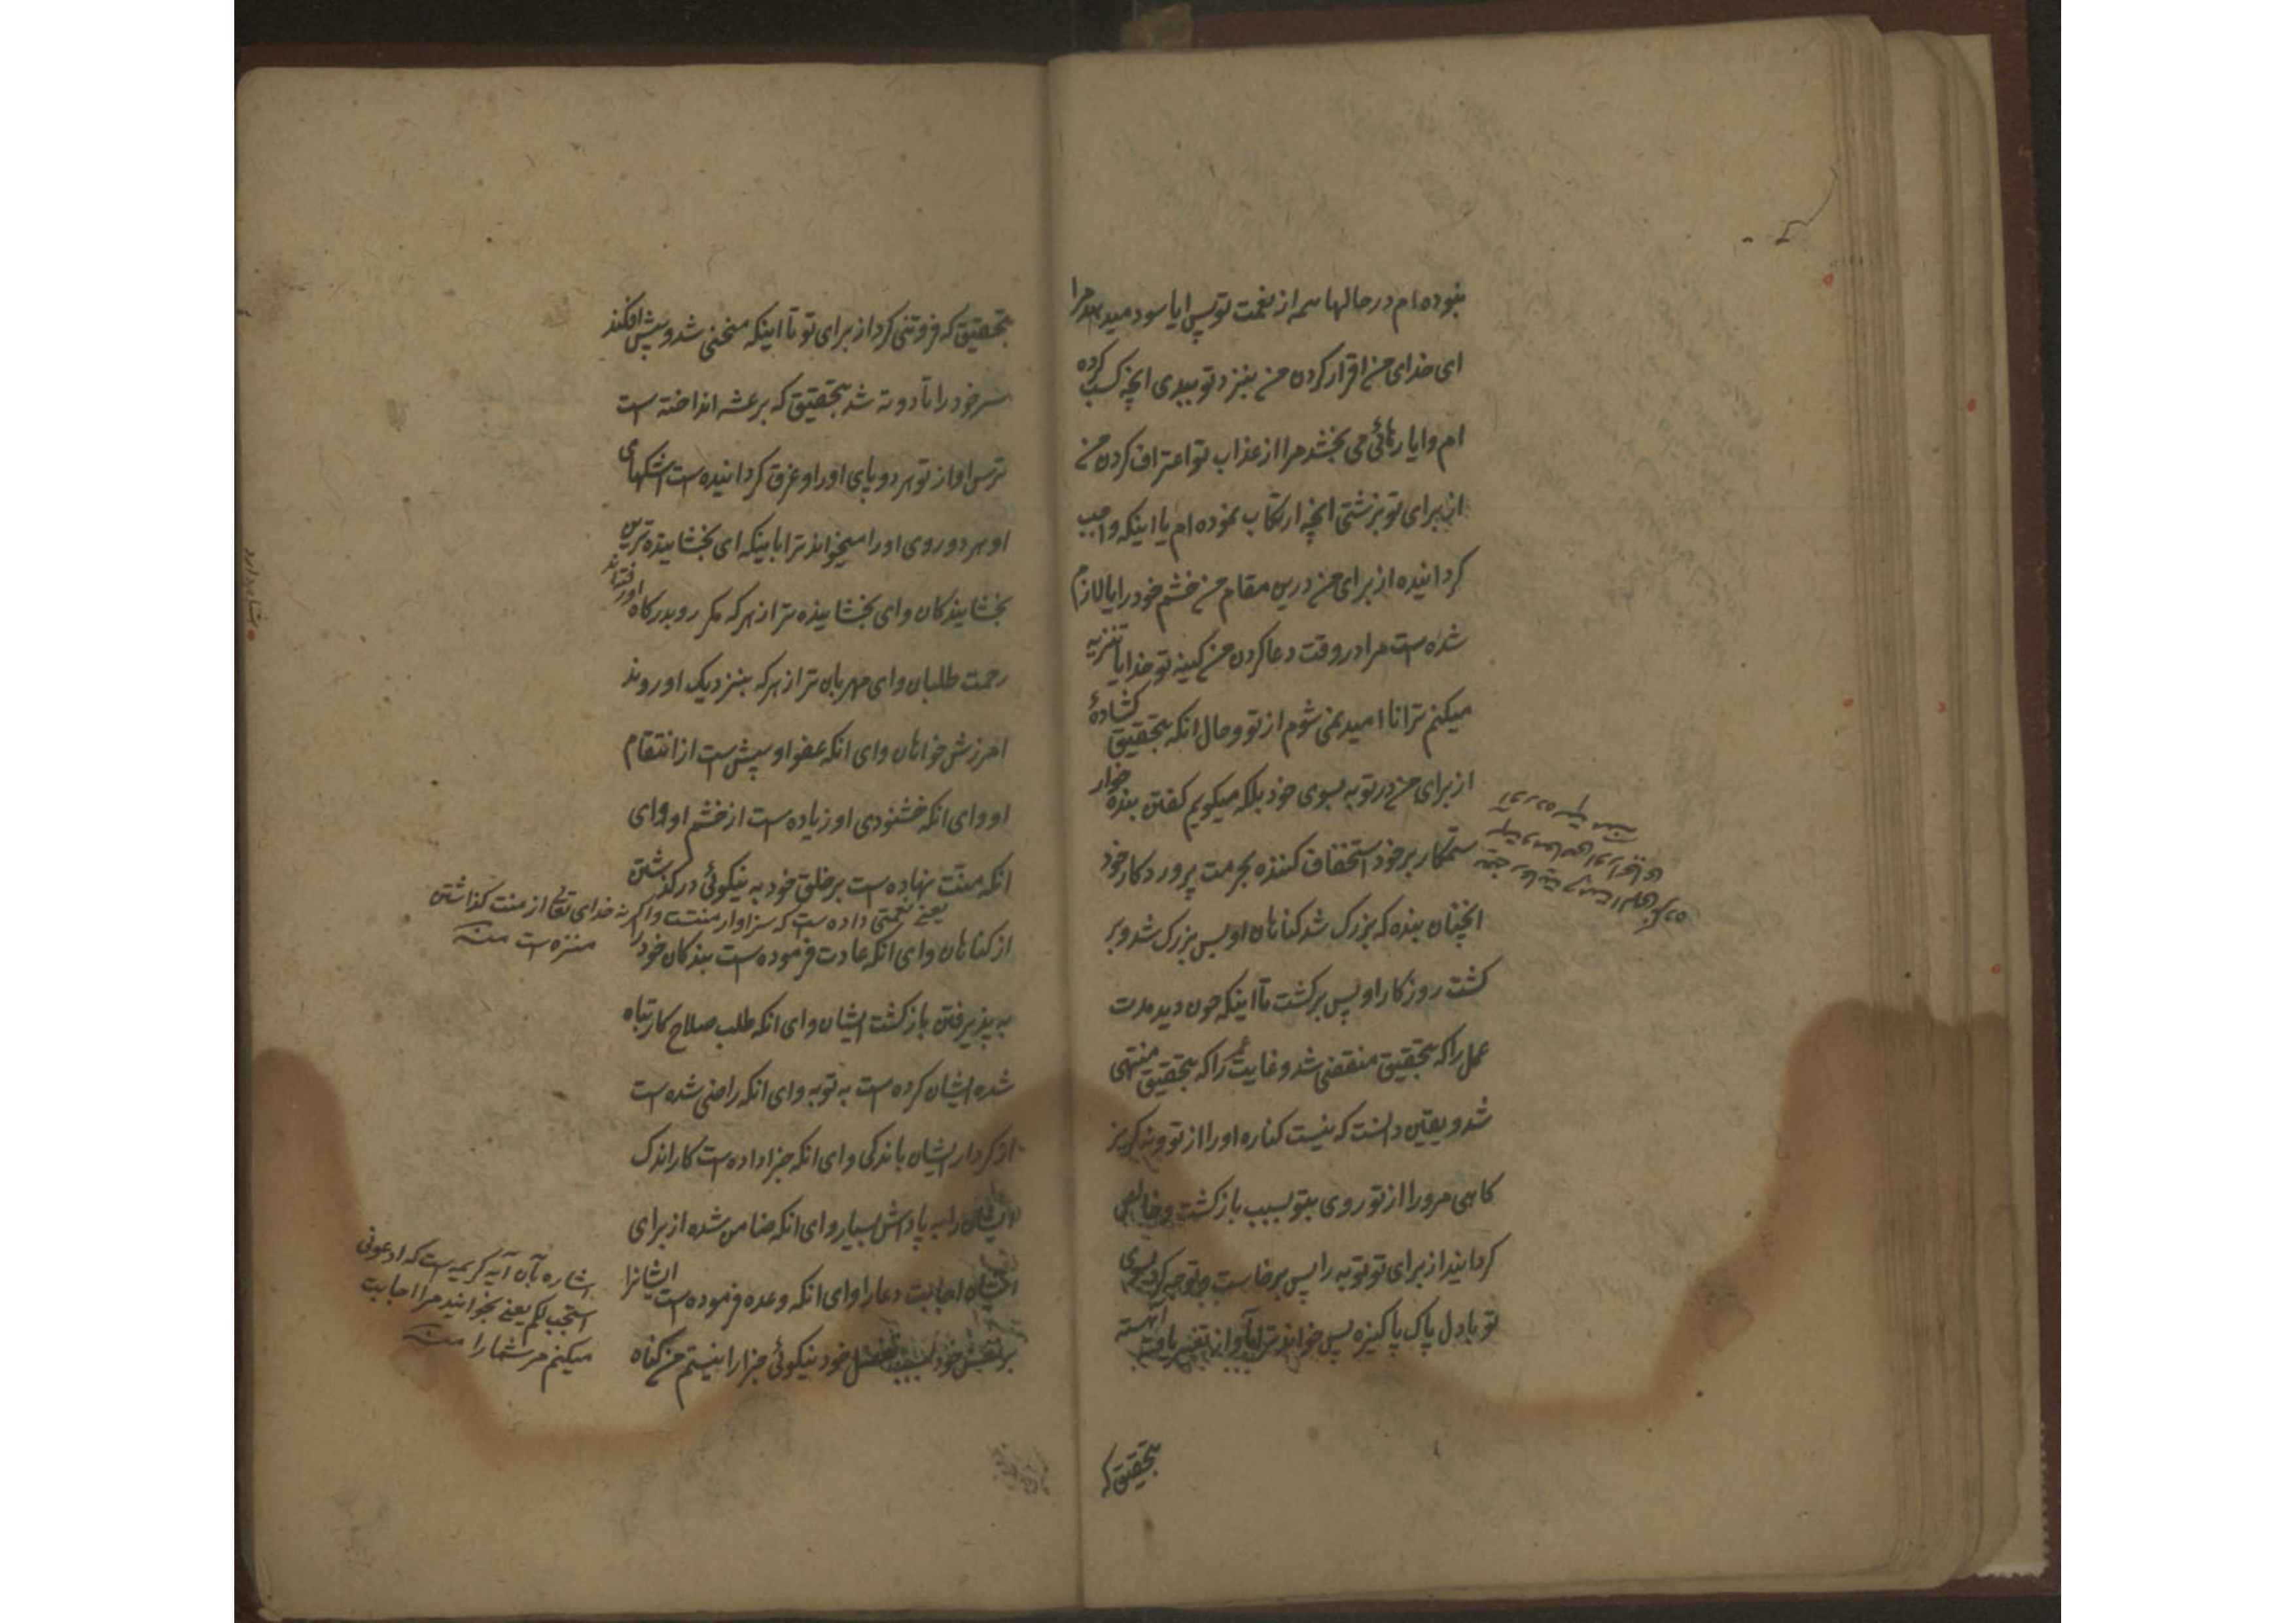 نبوده ام در حالها همه از نعمت تو پس ایا سود میدهد مرا
ای خدای من اقرار کردن من بنزد تو ببدی انچه کسب کرده
ام و ایا رهائی می بخشد مرا از عذاب تو اعتراف کردن من
از برای تو بزشتی انچه ارتکاب نموده ام یا اینکه واجب
کردانیده از برای من درین مقام من خشم خود را یا لازم
شده است مرا در وقت دعا کردن من کینه تو خدایا تنزیه
میکنم ترا نا امید نمی شوم از تو و حال انکه بتحقیق کشادهٔ
از برای من در توبه بسوی خود بلکه میکویم کفتن بنده خوار
ستمکار بر خود استخفاف کننده بحرمت پرورد کار خود
انچنان بنده که بزرک شد کناهان او پس بزرک شد و بر
کشت روز کار او پس برکشت تا اینکه چون دید مدت
عمل را که بتحقیق منقضی شد و غایت عمر را که بتحقیق منتهی
شد و یقین دانست که نیست کناره او را از تو و نه کریز
کاهی مرورا از تو روی بتو بسبب باز کشت و خالص
کردانید از برای تو توبه را پس برخاست و توجه کرد بسوی
تو با دل پاک پاکیزه پس خواند ترا باواز تغییر یافت اهسته
بتحقیق که
بتحقیق که فروتنی کرد از برای تو تا اینکه منحنی شد و پیش افکند
سر خود را تا دوته شد بتحقیق که برعشه انداخته است
ترس او از تو هر دو پای او را و غرق کردانیده است اشکهای
او هر دو روی او را میخواند ترا باینکه ای بخشاینده ترین
بخشایندکان و ای بخشاینده تر از هر که مکرر و بدرکاه او رفته اند
رحمت طلبان و ای مهربان تر از هر که بنزدیک او روند
امرزش خواهان و ای انکه عفو او بیش است از انتقام
او و ای انکه خشنودی او زیاده است از خشم او و ای
انکه منت نهاده است بر خلق خود به نیکوئی در کذشتن
یعنی نعمتی داده است که سزاوار منتست و اکر نه خدای تعالی از منت کذاشتن
منزه است منه
از کناهان و ای انکه عادت فرموده است بندکان خود را
به پذیرفتن باز کشت ایشان و ای انکه طلب صلاح کار تباه
شده ایشان کرده است به توبه و ای انکه راضی شده است
از کردار ایشان باندکی و ای انکه جزا داده است کار اندک
ایشان را به پاداش بسیار و ای انکه ضامن شده از برای
ایشان اجابت دعا را و ای انکه وعده فرموده است ایشانرا
اشاره بآن آیه کریمه است که ادعونی
استجب لکم یعنی بخوانید مرا اجابت
میکنم مر شما را منه
بر نفس خود بسبب تفضل خود نیکوئی جزا را نیستم من کناه